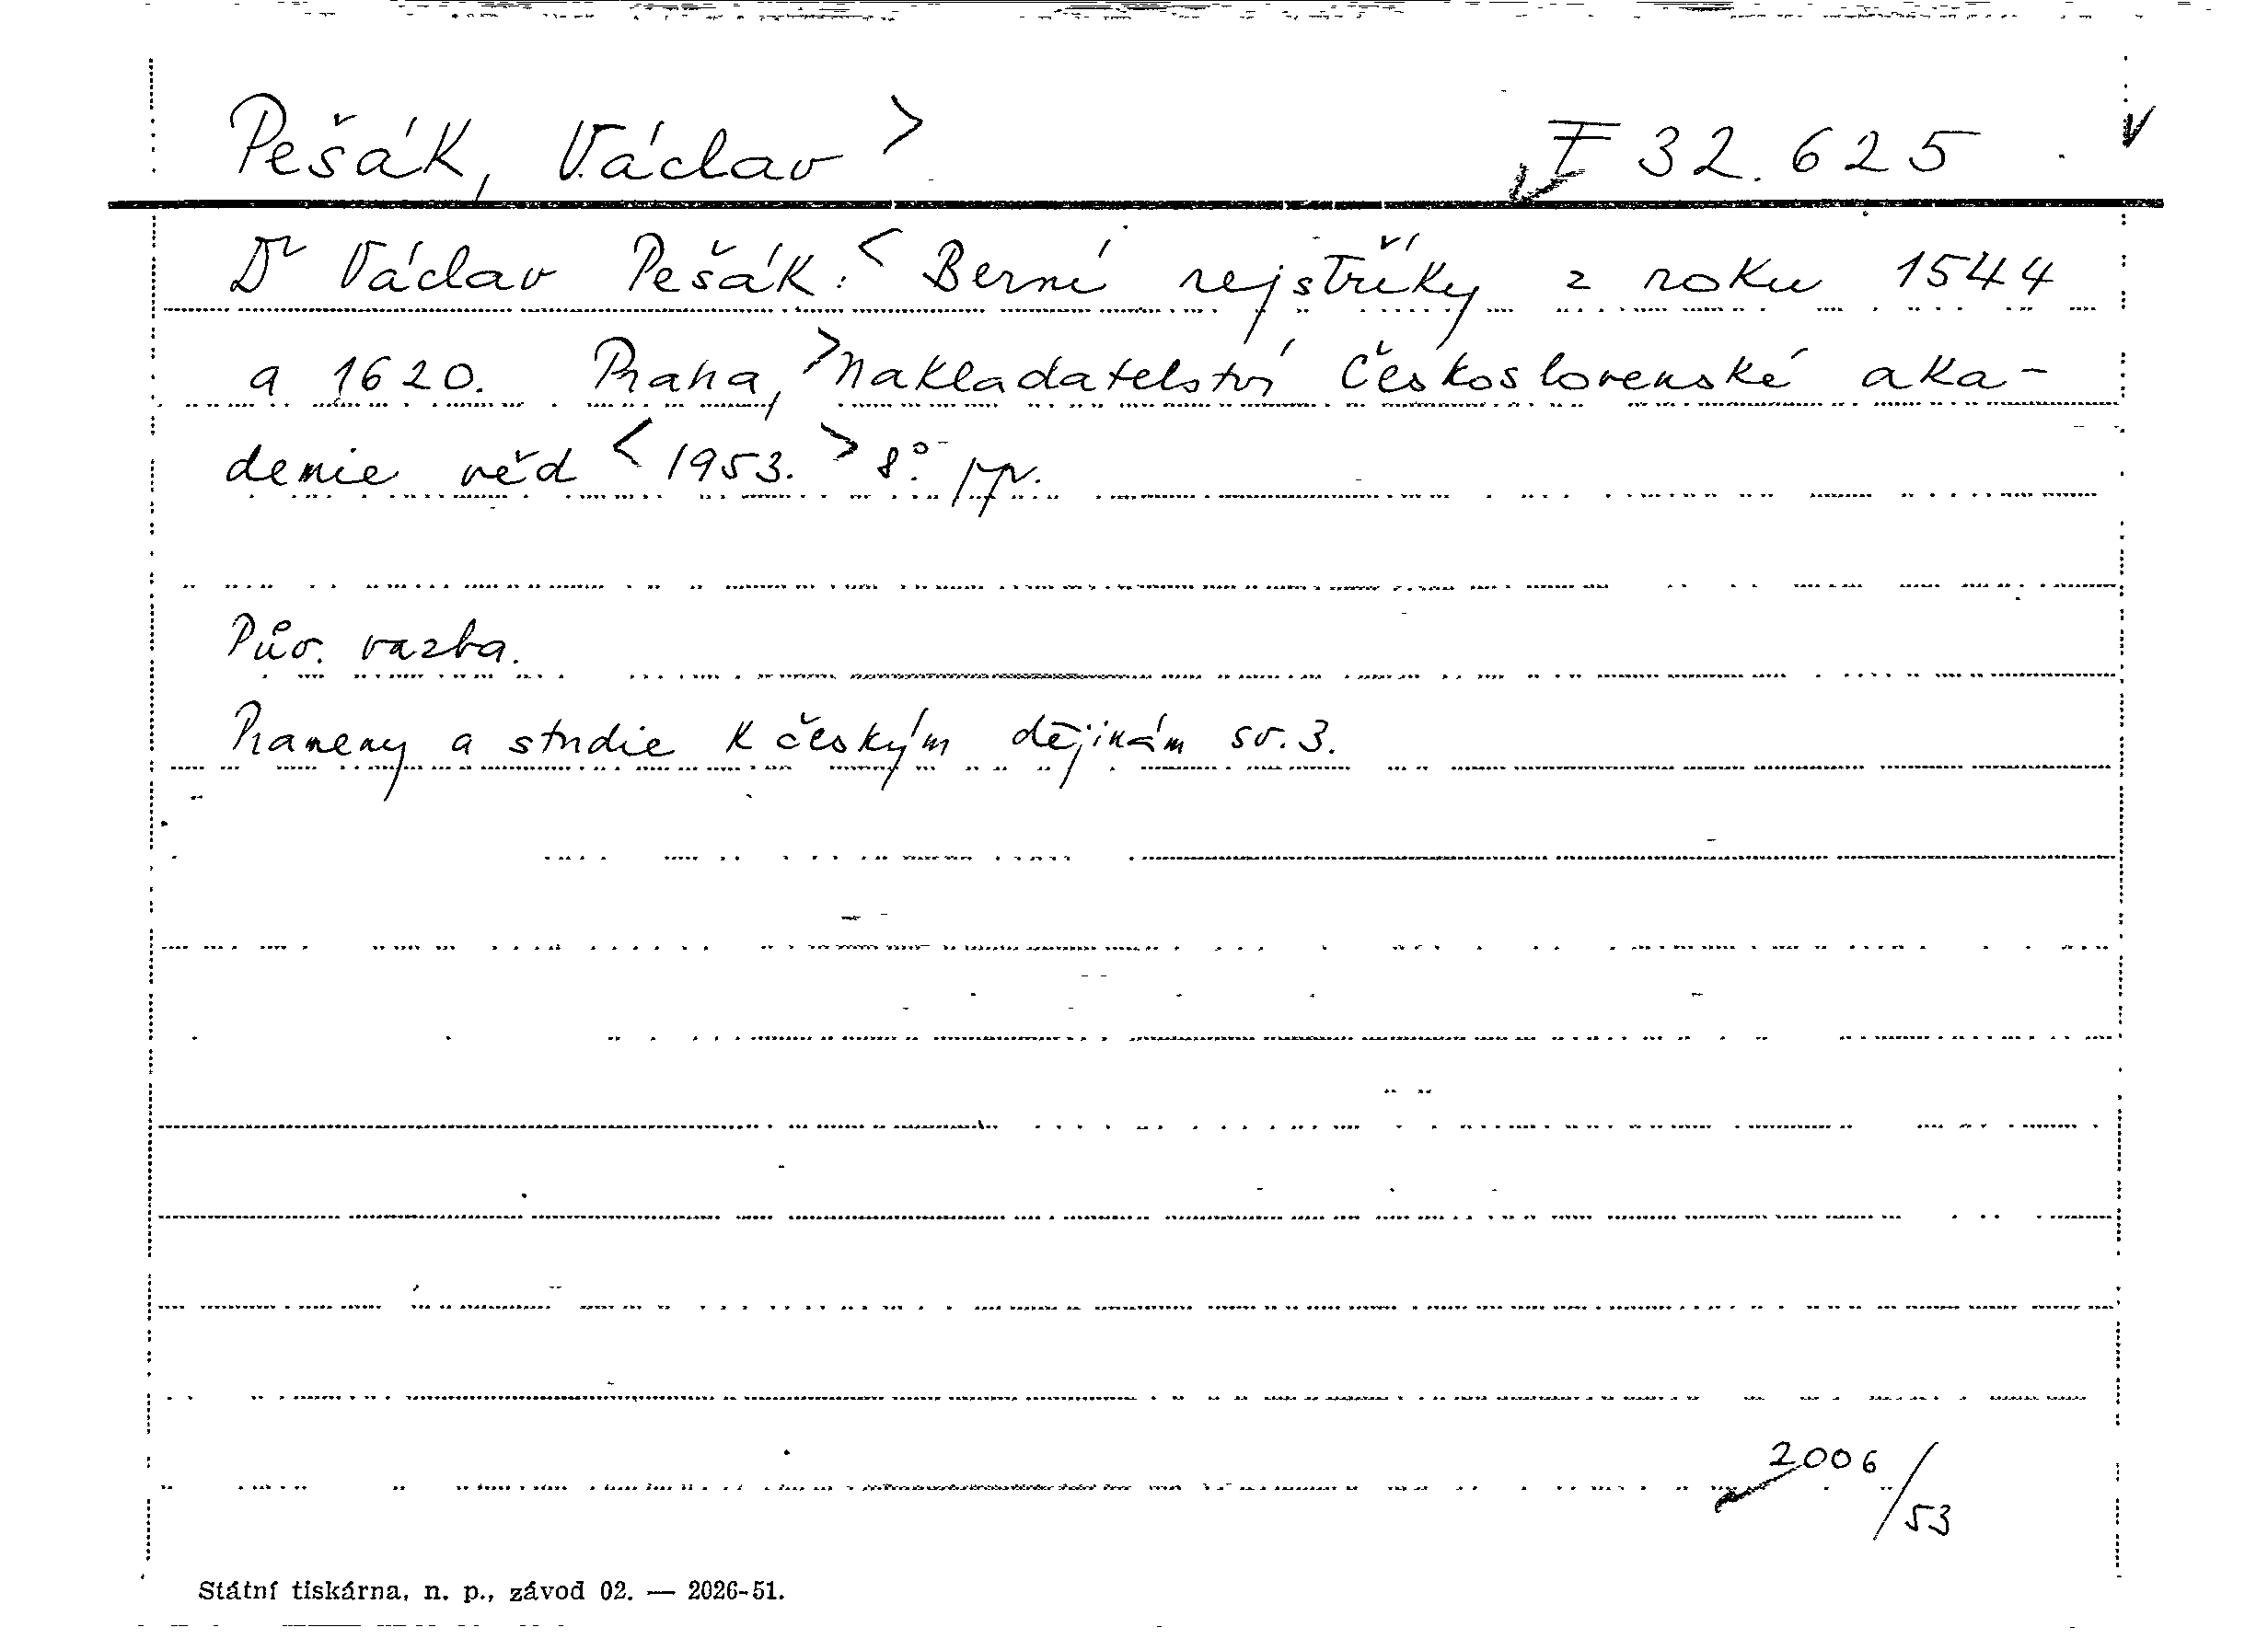 Pešák, Václav > F 32.625
Dr Václav Pešák: < Berní rejstříky z roku 1544
a 1620. Praha, > Nakladatelství Československé aka-
demie věd < 1953. > 8°.
Pův. vazba.
Prameny a studie k českým dějinám sv. 3.
2006/53
Státní tiskárna, n. p., závod 02. — 2026-51.